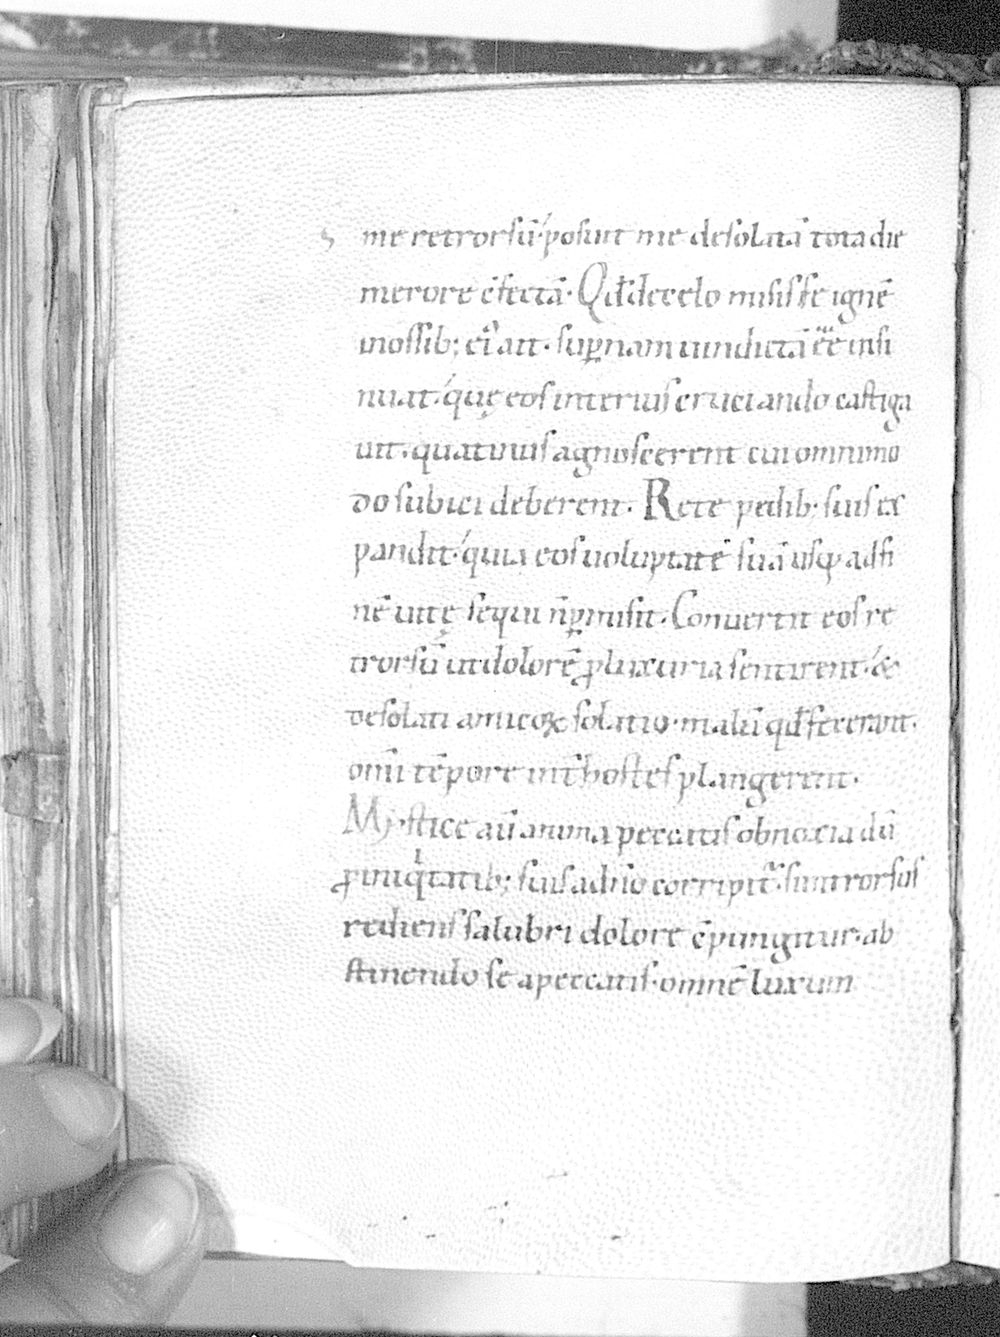 me retrorsū·posuit me desolatā tota die
merore c̄fectā· Qđ de celo misisse ignē
inossib; ei᷒ ait· suꝑnam uindictā ēē insi
nuat· quę eos interius cruciando castiga
uit· quatinus agnoscerent cui omnimo
do subici deberent· Rete pedib; suis ex
pandit· quia eos uoluptatē suā usq; ad fi
nē uitę sequi n̄ ꝑmisit· Conuertit eos re
trorsū ut dolorē ꝓ luxuria sentirent· &
desolati amicoꝝ solatio· malū qđ fecerunt·
om̄i tēpore int̄ hostes plangerent·
Mystice aū anima peccatis obnoxia dū
ꝓ iniqͥtatib; suis a dn̄o corripit᷒· sᷓ retrorsos
rediens salubri dolore c̄pungitur· ab
stinendo se a peccatis· omnē luxum